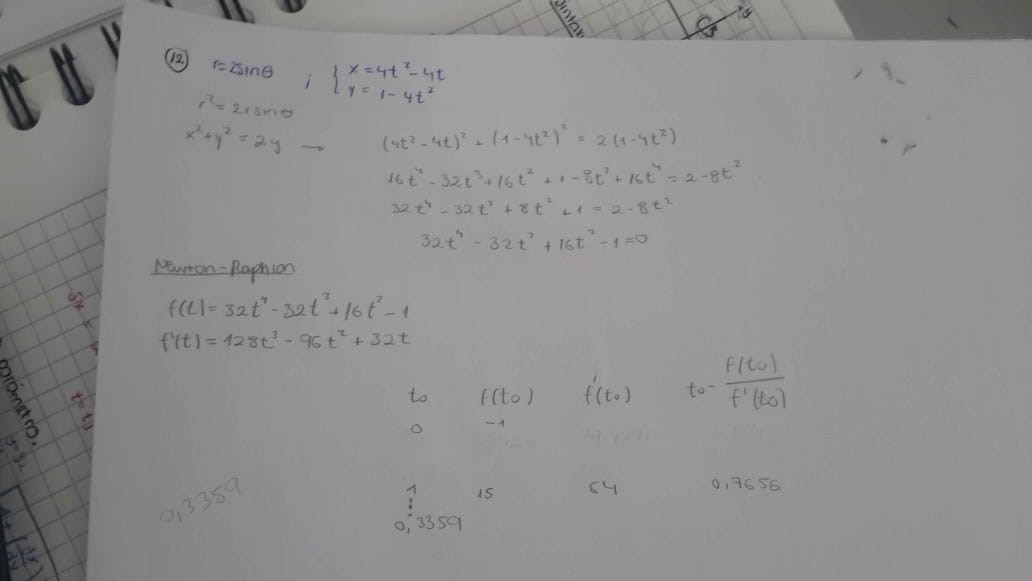 12 r=2sinθ ; { x=4t²-4t
y=1-4t²
r²=2rsinθ
x²+y²=2y → (4t²-4t)²+(1-4t²)²=2(1-4t²)
16t⁴-32t³+16t²+1-8t²+16t⁴=2-8t²
32t⁴-32t³+8t²+1=2-8t²
32t⁴-32t³+16t²-1=0
Newton-Raphson
f(t)=32t⁴-32t³+16t²-1
f'(t)=128t³-96t²+32t
t₀ f(t₀) f'(t₀) t₀-f(t₀)/f'(t₀)
0 -1
1 15 64 0,7656
0,3359
0,3359